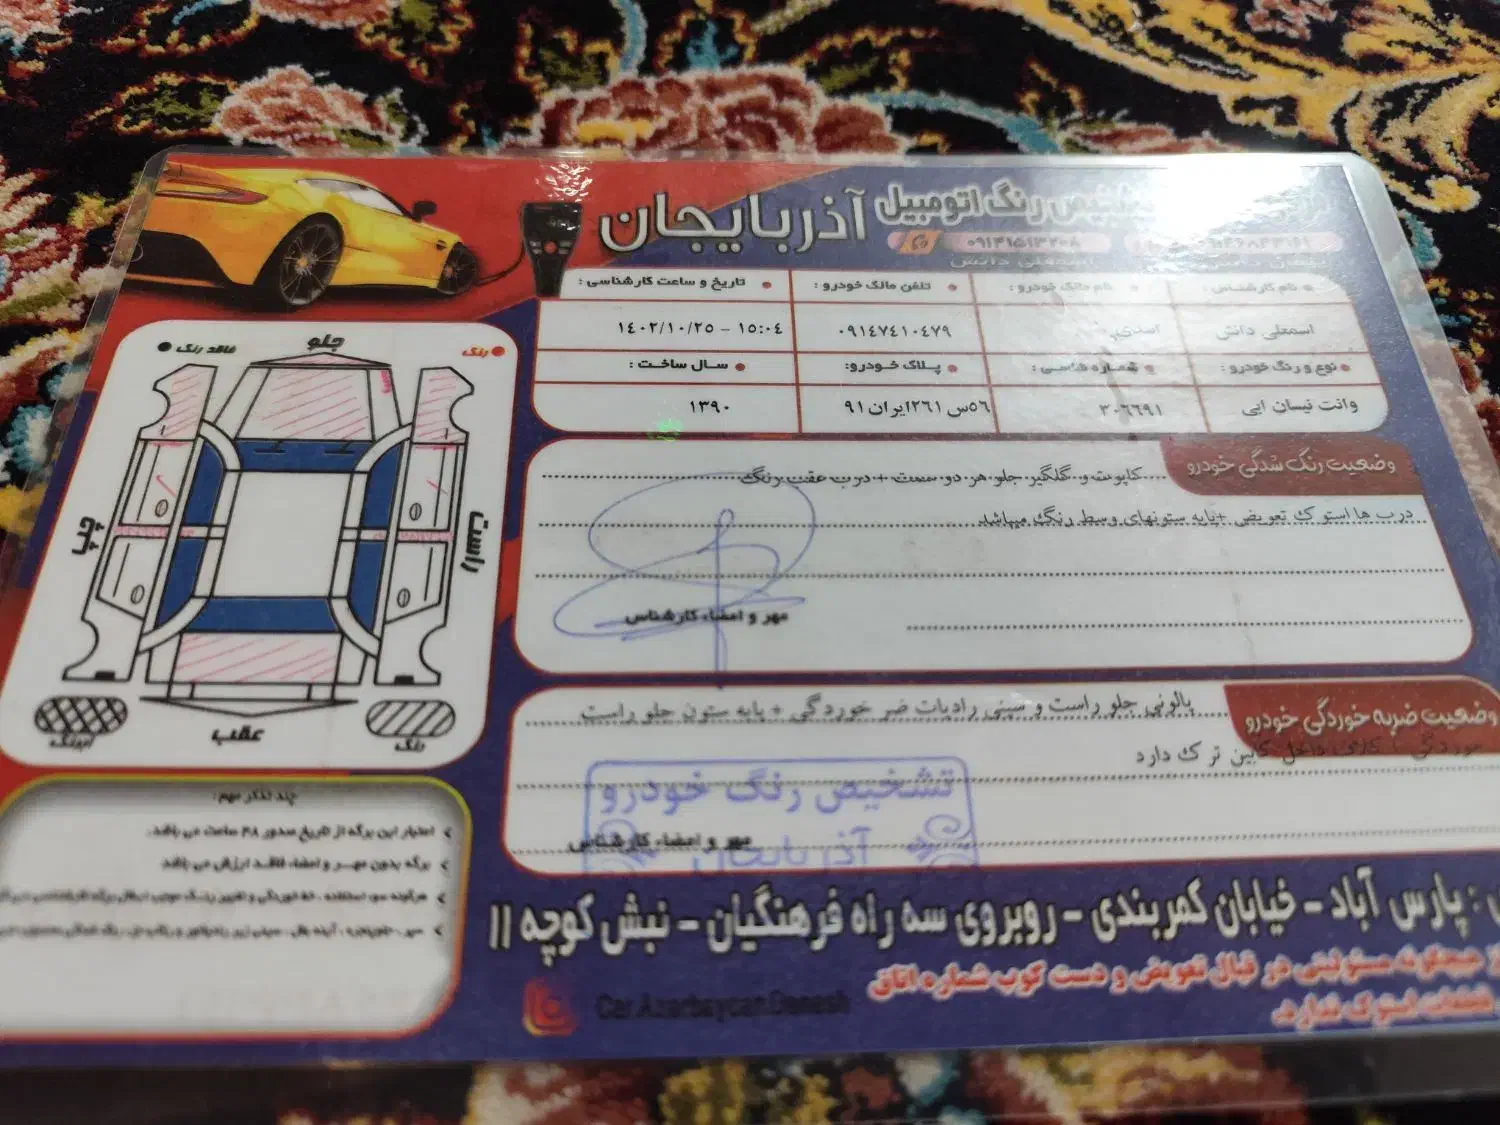 تشخیص رنگ اتومبیل آذربایجان
۰۹۱۴۱۵۱۳۲۰۸
اسمعلی دانش
نام کارشناس :
نام مالک خودرو :
تلفن مالک خودرو :
تاریخ و ساعت کارشناسی :
اسمعلی دانش
اسدی
۰۹۱۴۷۴۱۰۴۷۹
۱۴۰۲/۱۰/۲۵ - ۱۵:۰۴
نوع و رنگ خودرو :
شماره شاسی :
پلاک خودرو:
سال ساخت :
وانت نیسان ابی
۳۰۶۶۹۱
۵۶س۲۶۱ایران۹۱
۱۳۹۰
وضعیت رنگ شدگی خودرو
کاپوت و گلگیر جلو هر دو سمت + درب عقب رنگ
درب ها استوک تعویض +پایه ستونهای وسط رنگ میباشد
مهر و امضاء کارشناس
وضعیت ضربه خوردگی خودرو
پالونی جلو راست و سینی رادیات ضر خوردگی + پایه ستون جلو راست
داخل کابین ترک دارد
تشخیص رنگ خودرو
آذربایجان
مهر و امضاء کارشناس
رنگ
فاقد رنگ
جلو
چپ
راست
عقب
رنگ
چند تذکر مهم:
اعتبار این برگه از تاریخ صدور ۴۸ ساعت می باشد.
برگه بدون مهر و امضاء فاقد ارزش می باشد
: پارس آباد - خیابان کمربندی - روبروی سه راه فرهنگیان - نبش کوچه ۱۱
هیچگونه مسئولیتی در قبال تعویض و دست کوب شماره اتاق
قطعات استوک ندارد.
Car.Azarbaycan.Danesh